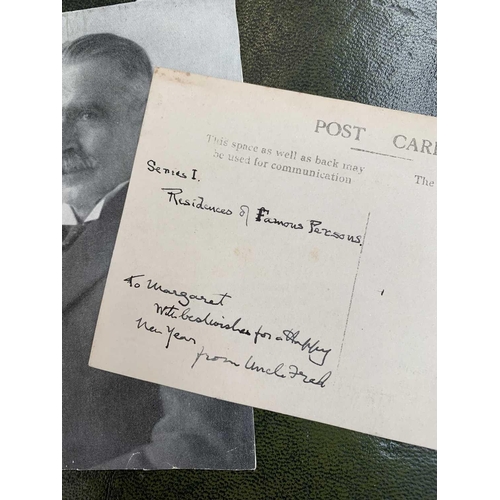 POST CAR
This space as well as back may
be used for communication
The
Series I.
Residences of Famous Persons.
To Margaret
With best wishes for a Happy
New Year
from Uncle Fred